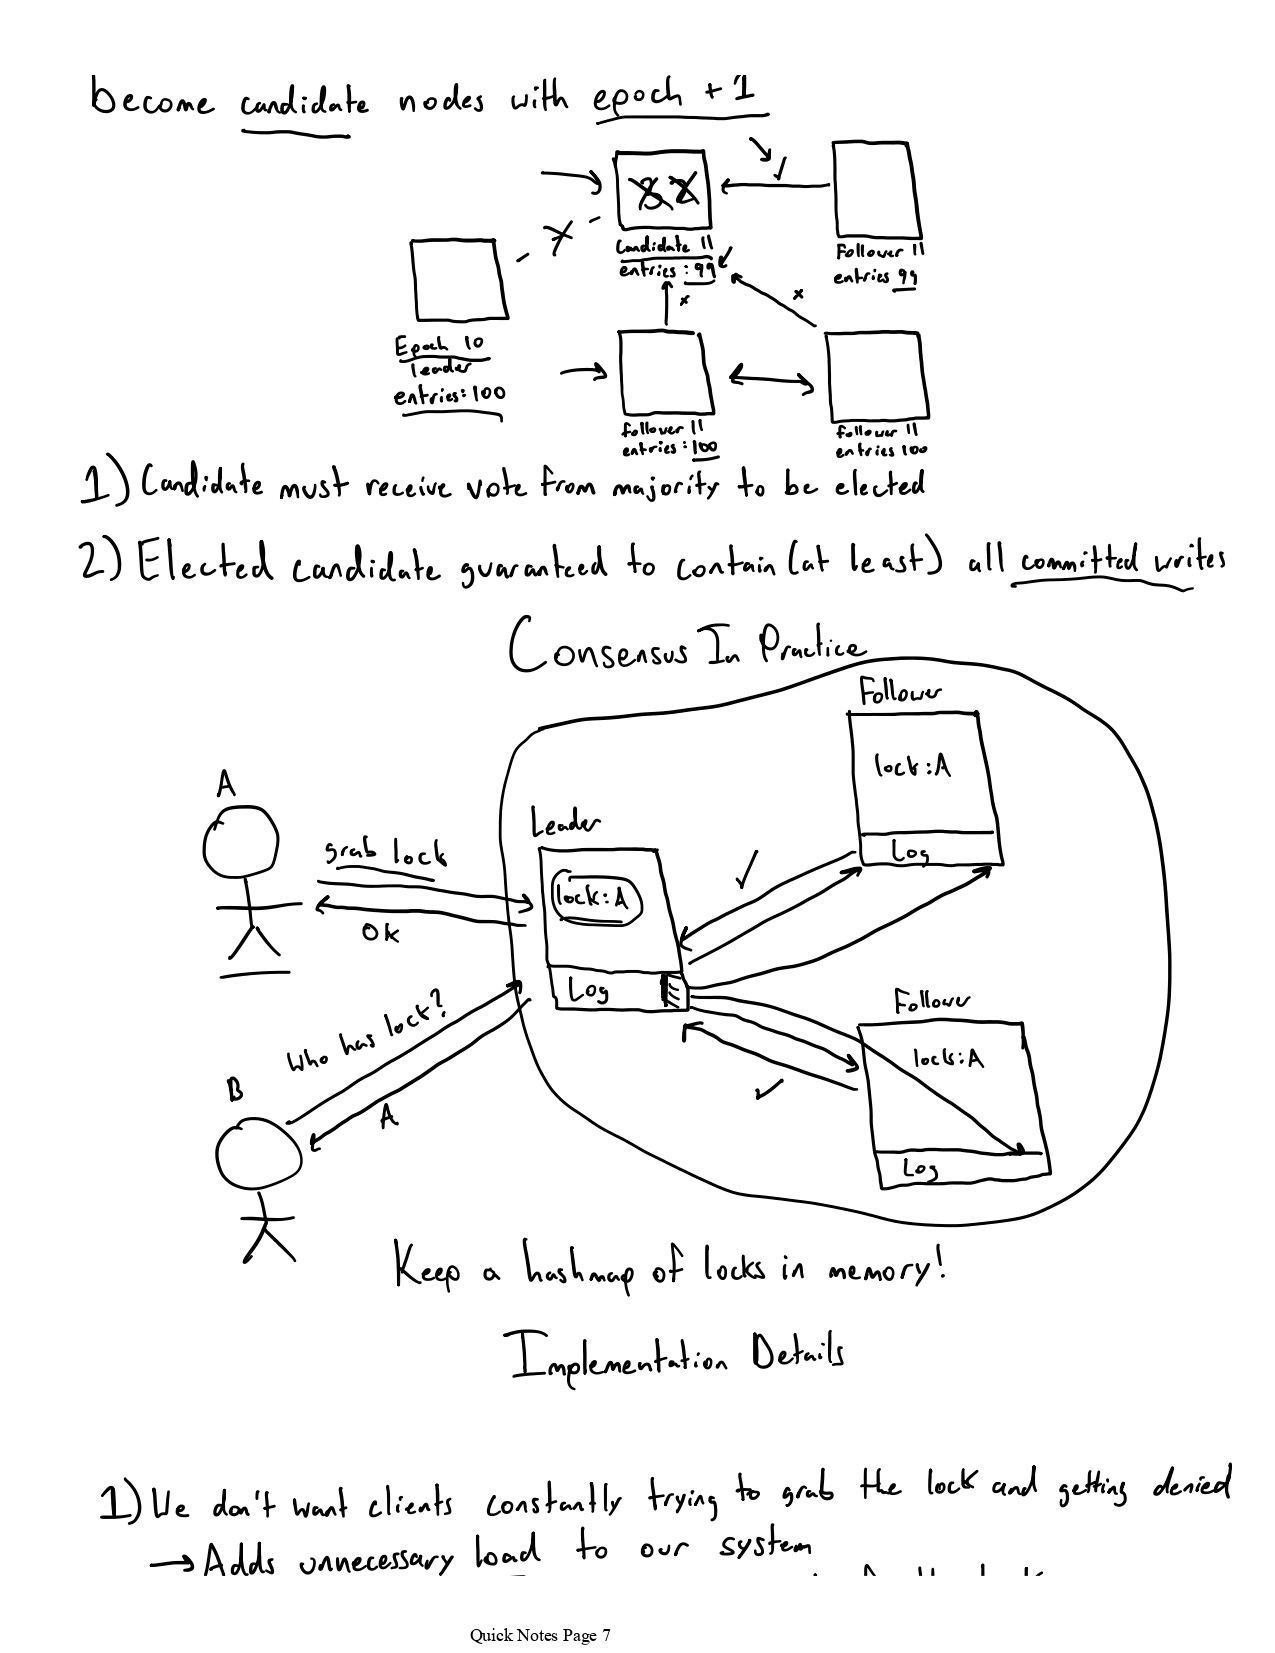 become candidate nodes with epoch + 1
Candidate 11
entries: 99
Follower 11
entries 99
Epoch 10
leader
entries: 100
follower 11
entries: 100
follower 11
entries 100
1) Candidate must receive vote from majority to be elected
2) Elected candidate guaranteed to contain (at least) all committed writes
Consensus In Practice
Follower
lock: A
Log
A
Leader
grab lock
lock: A
OK
Log
Who has lock?
A
B
Follower
lock: A
Log
Keep a hashmap of locks in memory!
Implementation Details
1) We don't want clients constantly trying to grab the lock and getting denied
→ Adds unnecessary load to our system
Quick Notes Page 7